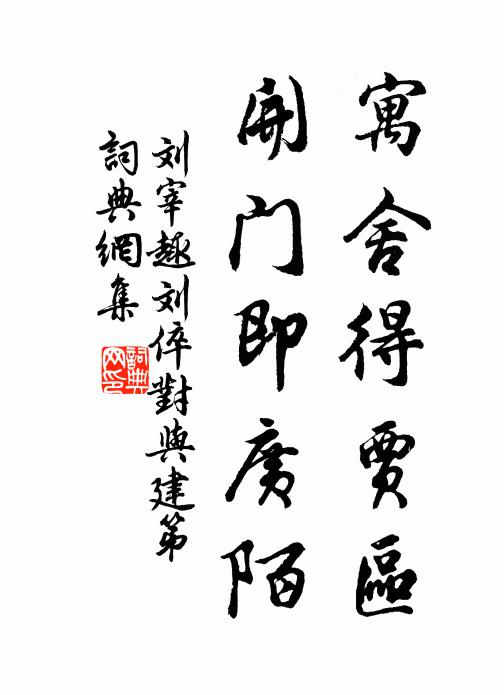 寓舍得賈區
開门即廣陌
刘宰趣刘倅對與建第
詞典網集
詞典网印